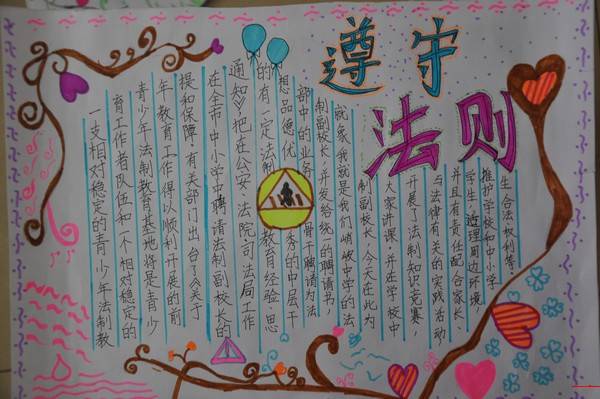 遵守
法则
一支相对稳定的青少年法制教
育工作者队伍和一个相对稳定的
青少年法制教育基地将是青少
年教育工作得以顺利开展的前
提和保障。有关部门出台了《关于
在全市中小学中聘请法制副校长的
通知》把在公安、法院、司法局工作
的有一定法制教育经验、思
想品德优秀的中层干
部中的业务骨干聘请为法
制副校长,并发给统一的聘请书,
就象我就是我们峭岐中学的法
制副校长,今天在此为
大家讲课,并在学校中
开展了法制知识竞赛,
与法律有关的实践活动
并且有责任配合家长、
学生,治理周边环境,
维护学校和中小学
生合法权利等。